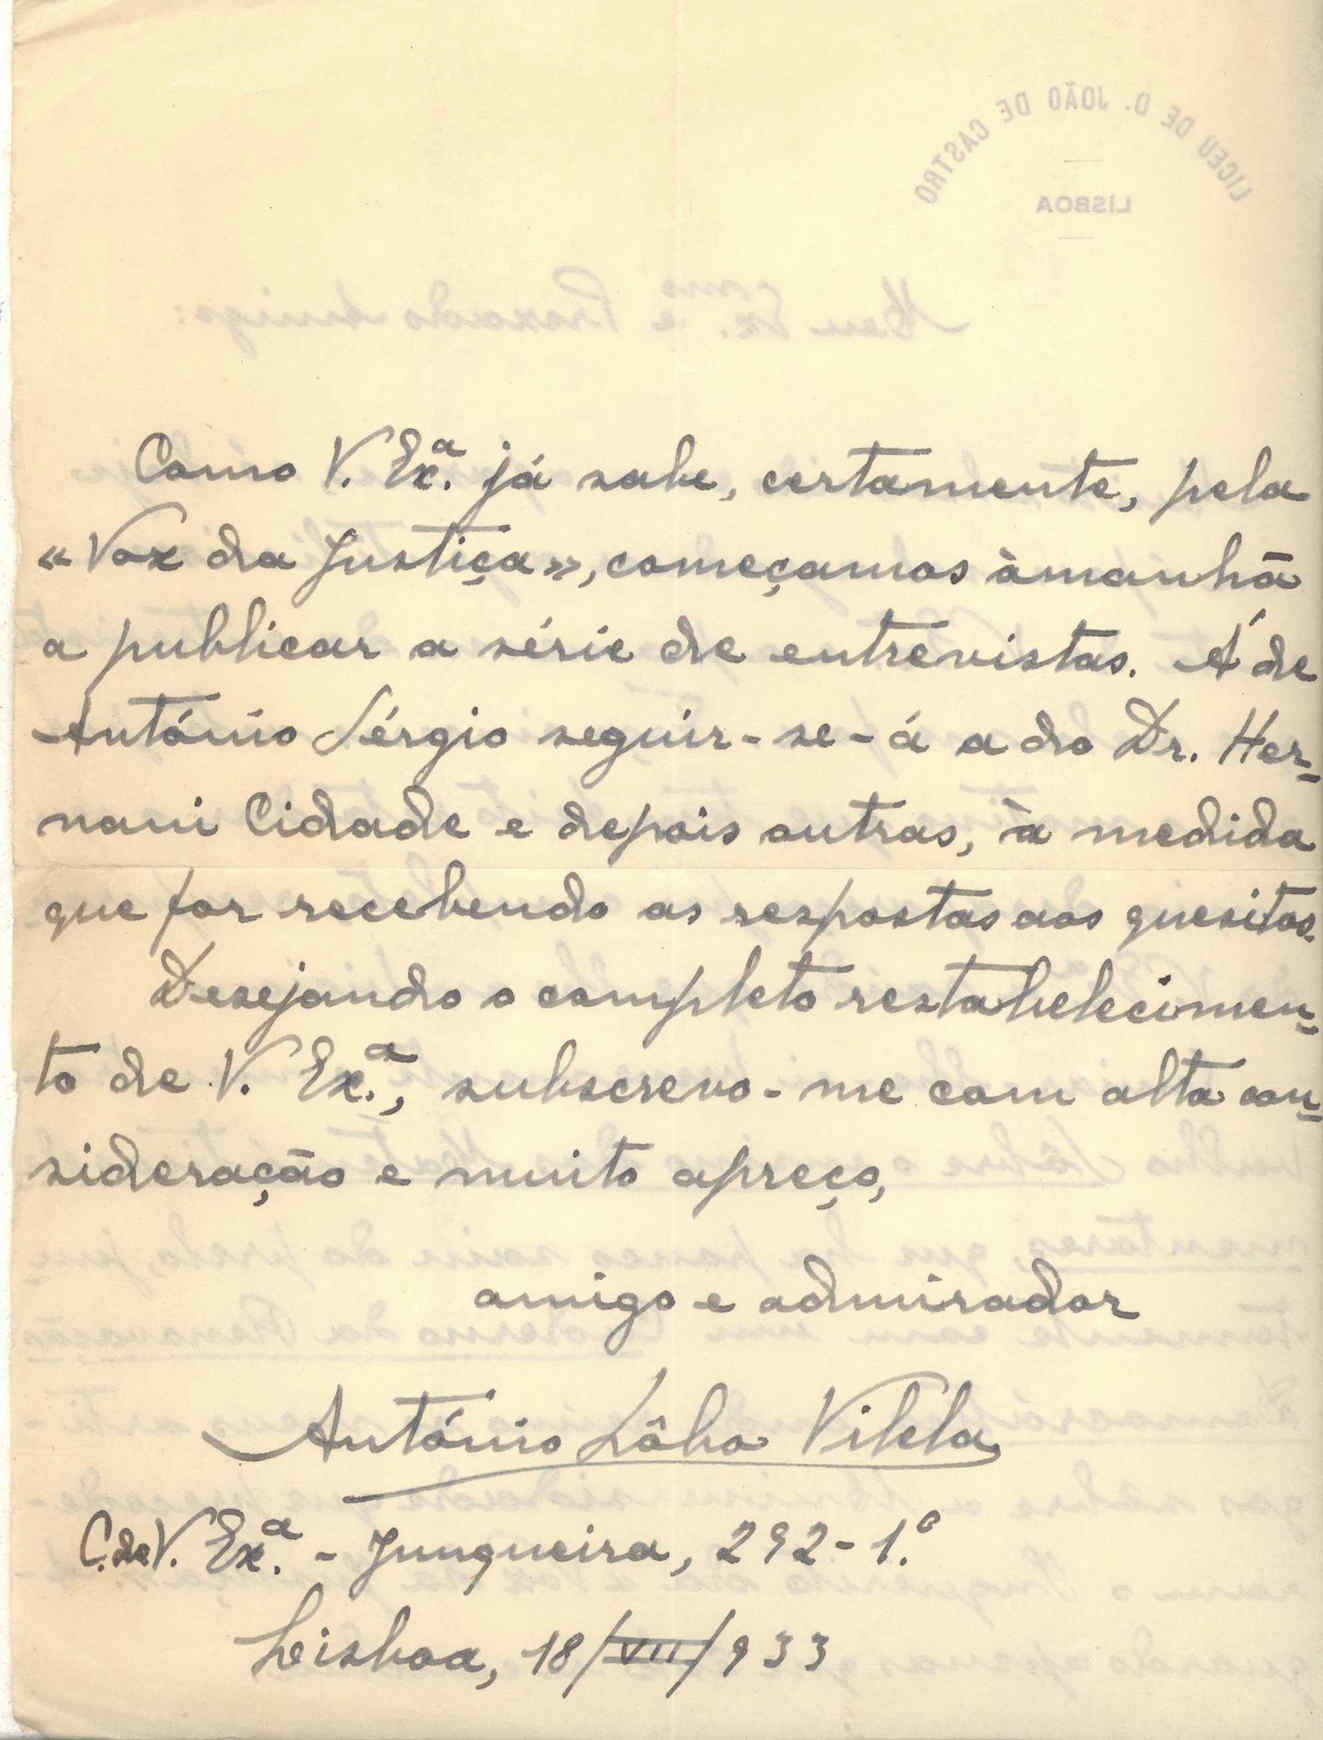 LICEU DE D. JOÃO DE CASTRO
LISBOA
Meu Ex.mo e Prezado Amigo:
Como V. Ex.ª já sabe, certamente, pela
«Voz da Justiça», começamos àmanhã
a publicar a série de entrevistas. Á de
António Sérgio seguir-se-á a do Dr. Her-
nani Cidade e depois outras, à medida
que for recebendo as respostas aos quesitos.
Desejando o completo restabelecimen-
to de V. Ex.ª, subscrevo-me com alta con-
sideração e muito apreço,
amigo e admirador
António Lôbo Vilela
C. de V. Ex.ª - Junqueira, 292-1.º
Lisboa, 18/VII/933